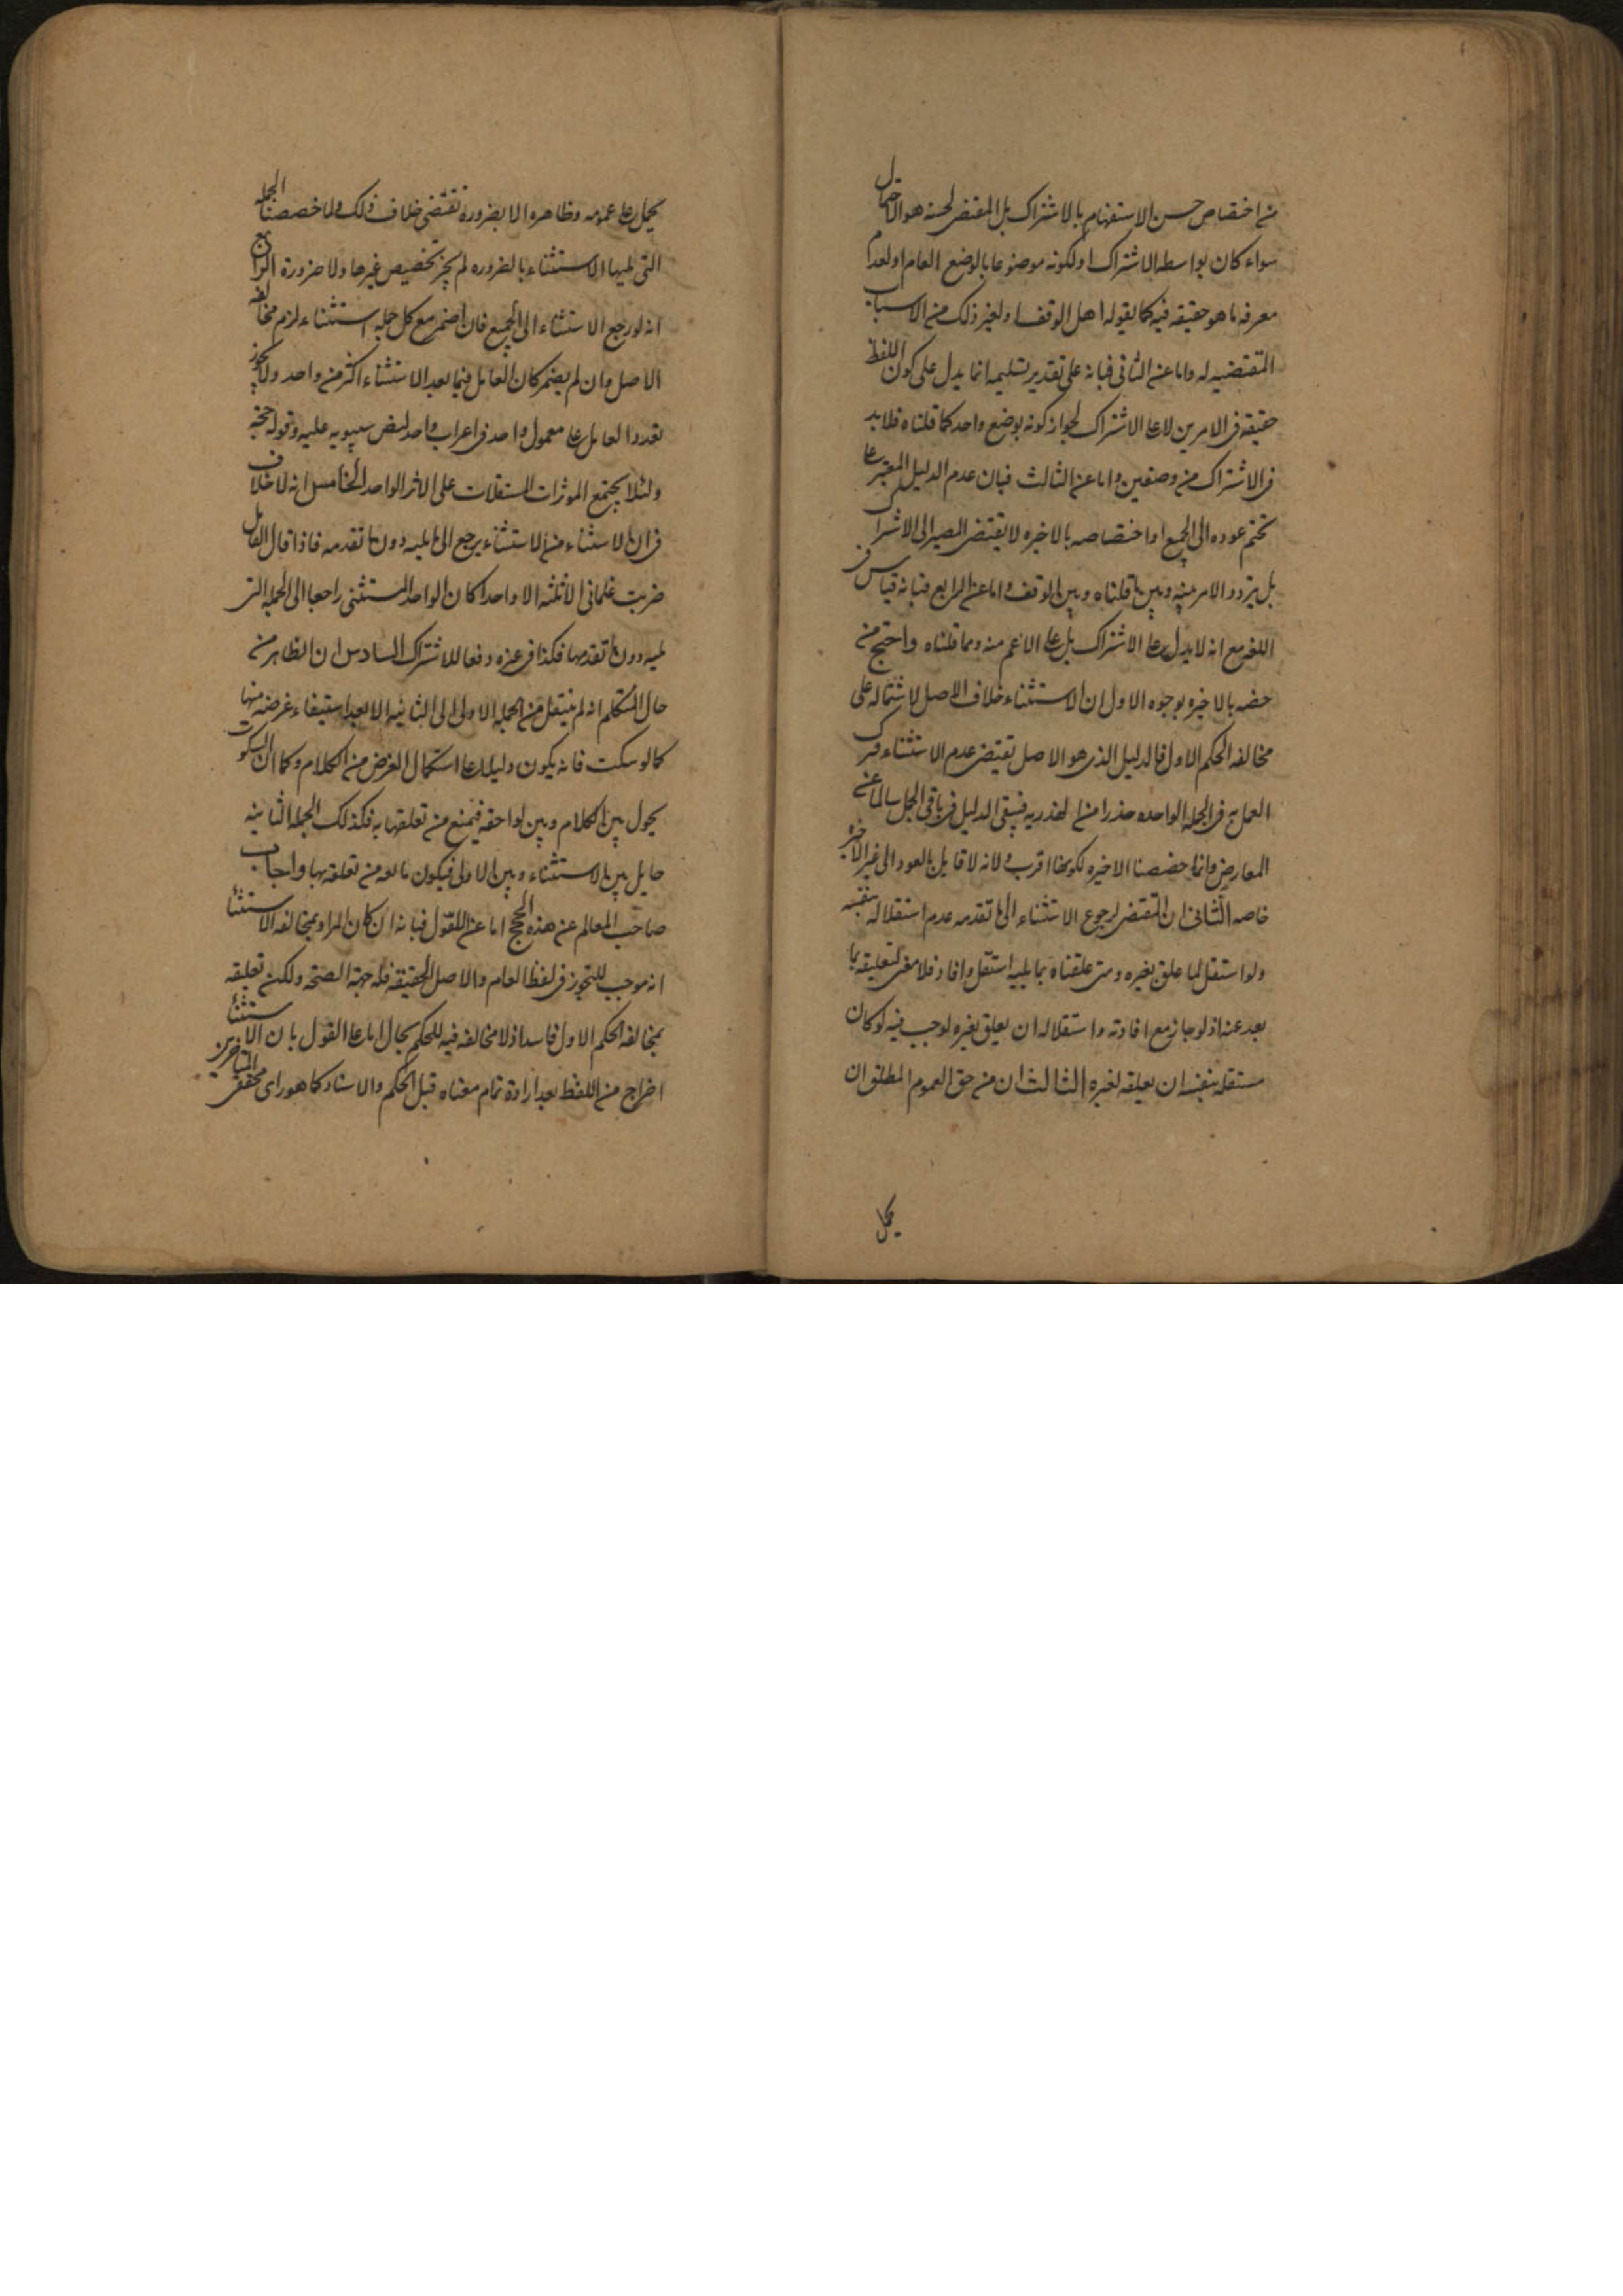 من اختصاص حسن الاستفهام بالاشتراك بل المقتضى لحسنه هو الاحتمال
سواء كان بواسطه الاشتراك او لكونه موضوعا بالوضع العام او لعدم
معرفه ما هو حقيقه فيه كما يقوله اهل الوقف او لغير ذلك من الاسباب
المقتضيه له واما عن الثانى فبانه على تقدير تسليمه انما يدل على كون اللفظ
حقيقة فى الامرين لا على الاشتراك لجواز كونه بوضع واحد كما قلناه فلا بد
فى الاشتراك من وضعين واما عن الثالث فبان عدم الدليل المعتبر على
تحتم عوده الى الجميع او اختصاصه بالاخيره لا يقتضى المصير الى الاشتراك
بل يتردد الامر بينه وبين ما قلناه وبين الوقف واما عن الرابع فبانه قياس فى
اللغه مع انه لا يدل على الاشتراك بل على الاعم منه ومما قلناه واحتج من
خصه بالاخيره بوجوه الاول ان الاستثناء خلاف الاصل لاشتماله على
مخالفه الحكم الاول فالدليل الذى هو الاصل تقتضى عدم الاستثناء ترك
العمل به فى الجمله الواحده حذرا من الهذريه فيبقى الدليل فى باقى الجمل سالما عن
المعارض وانما خصصنا الاخيره لكونها اقرب ولانه لا قايل بالعود الى غير الاخيره
خاصه الثانى ان المقتضى لرجوع الاستثناء الى ما تقدمه عدم استقلاله بنفسه
ولو استقل لما علق بغيره ومتى علقناه بما يليه استقل وافاد فلا معنى لتعليقه بما
بعد عنه اذ لو جاز مع افادته واستقلاله ان يعلق بغيره لوجب فيه لو كان
مستقله بنفسه ان يعلقه لغيره الثالث ان من حق العموم المطلق ان
يحمل
يحمل على عمومه وظاهره الا بضرورة تقتضى خلاف ذلك ولما خصصنا الجمله
التى يليها الاستثناء بالضروره لم يجز تخصيص غيرها ولا ضرورة الرابع
انه لو رجع الاستثناء الى الجميع فان اضمر مع كل جمله استثناء لزم مخالفه
الاصل وان لم يضمر كان العامل فيما بعد الاستثناء اكثر من واحد ولا يجوز
تعدد العامل على معمول واحد فى اعراب واحد لنص سيبويه عليه وقوله حجه
ولئلا يجتمع الموثرات المستقلات على الاثر الواحد الخامس انه لا خلاف
فى ان الاستثناء من الاستثناء يرجع الى ما يليه دون ما تقدمه فاذا قال القايل
ضربت غلمانى الا ثلثه الا واحدا كان الواحد المستثنى راجعا الى الجمله التى
يليه دون ما تقدمها فكذا فى غيره دفعا للاشتراك السادس ان الظاهر من
حال المتكلم انه لم ينتقل من الجمله الاولى الى الثانيه الا بعد استيفاء غرضه منها
كما لو سكت فانه يكون دليلا على استكمال الغرض من الكلام وكما ان السكوت
يحول بين الكلام وبين لواحقه فيمنع من تعلقها به فكذلك الجمله الثانيه
حايل بين الاستثناء وبين الاولى فيكون مانعه من تعلقه بها واجاب
صاحب المعالم عن هذه الحجج اما عن الاول فبانه ان كان المراد بمخالفه الاستثنا
انه موجب للتجوز فى لفظ العام والاصل الحقيقه فله جهة الصحه ولكن تعليقه
بمخالفه الحكم الاول فاسد اذ لا مخالفه فيه للحكم بحال اما على القول بان الاستثنا
اخراج من اللفظ بعد ارادة تمام معناه قبل الحكم والاسناد كما هو راى محققى المتاخرين